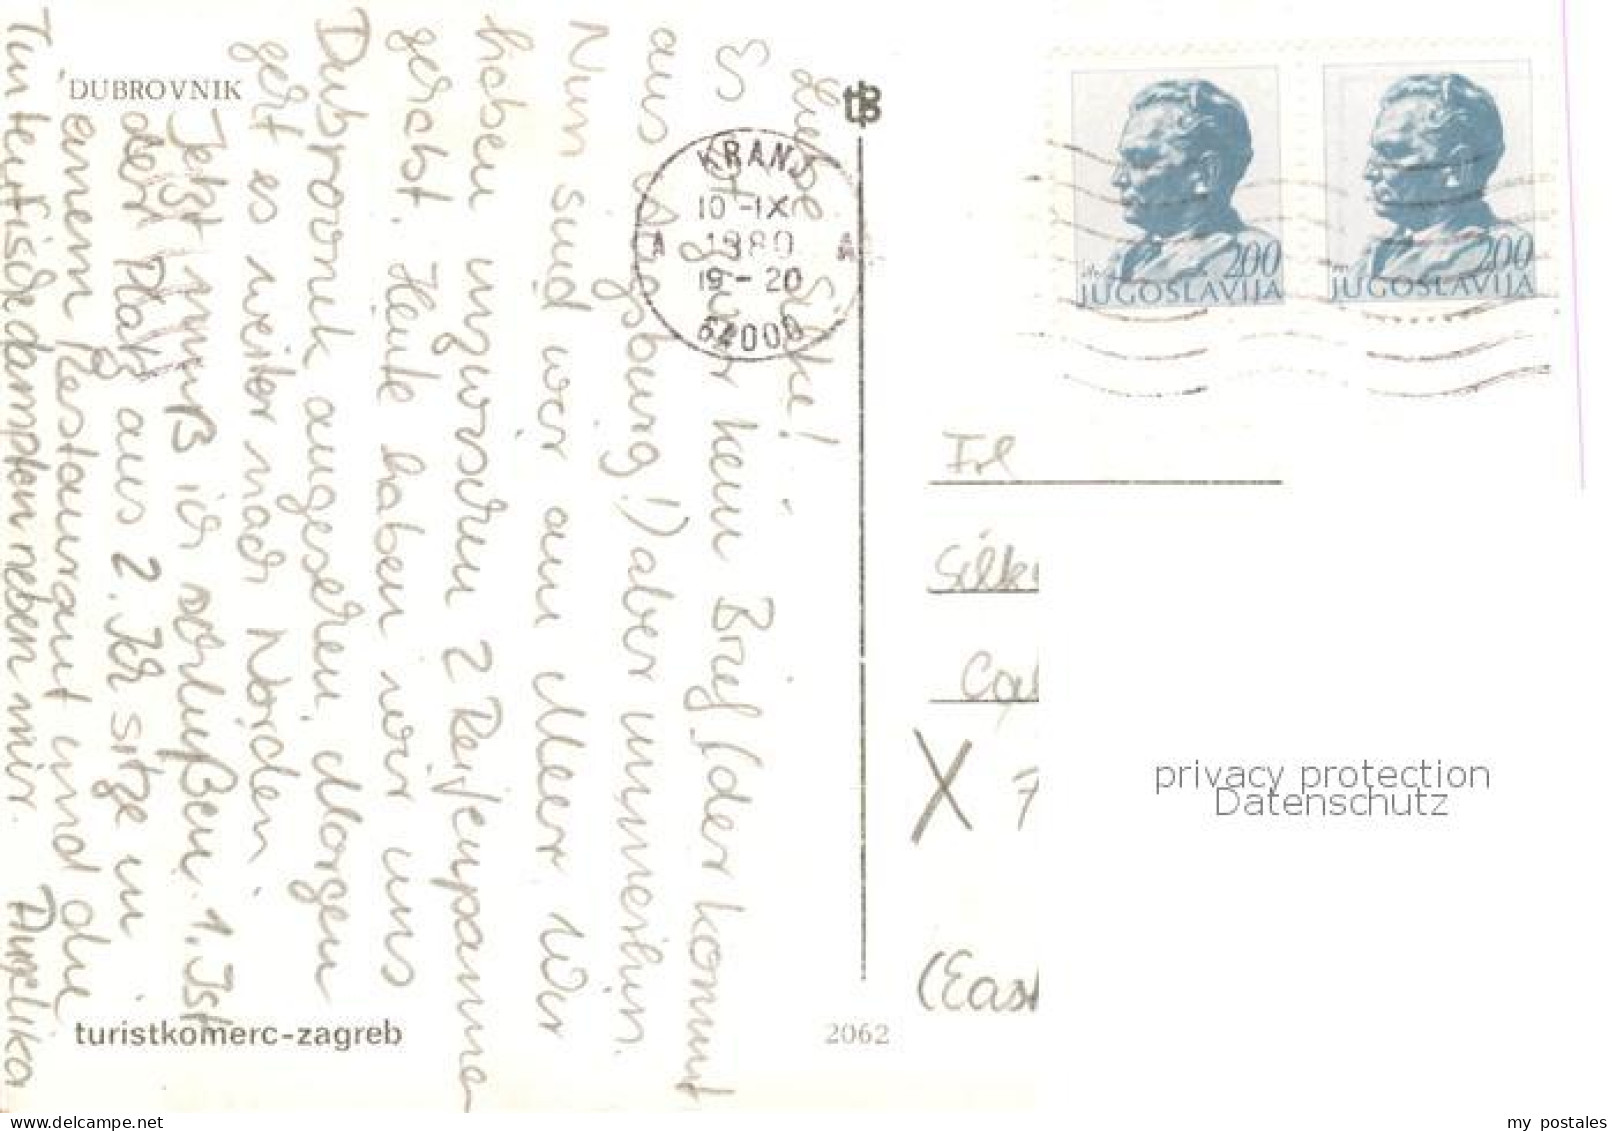 DUBROVNIK
Liebe Silke!
S' ist zwar kein Brief (der kommt
aus Augsburg!) aber immerhin.
Nun sind wir am Meer. Wir
haben inzwischen 2 Reifenpannen
gehabt. Heute haben wir uns
Dubrovnik angesehen. Morgen
geht es weiter nach Norden.
Jetzt muß ich schließen. 1. Ist
der Platz aus 2. Ich sitze in
einem Restaurant und die
Tintenfische dampfen neben mir. Angelika
turistkomerc-zagreb
2062
tB
KRANJ
10-IX
1980
A A
19-20
64000
200
JUGOSLAVIJA
200
JUGOSLAVIJA
Frl
Silk
X 7
(East
privacy protection
Datenschutz
www.delcampe.net
my_postales